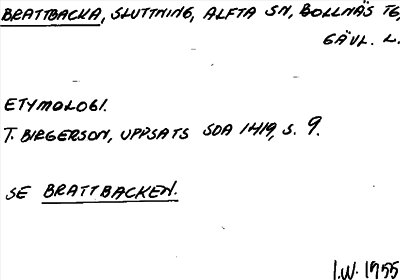 BRATTBACKA, SLUTTNING, ALFTA SN, BOLLNÄS TG,
GÄVL. L.
ETYMOLOGI.
T. BIRGERSON, UPPSATS SDA 1419, S. 9.
SE BRATTBACKEN.
I.W. 1955